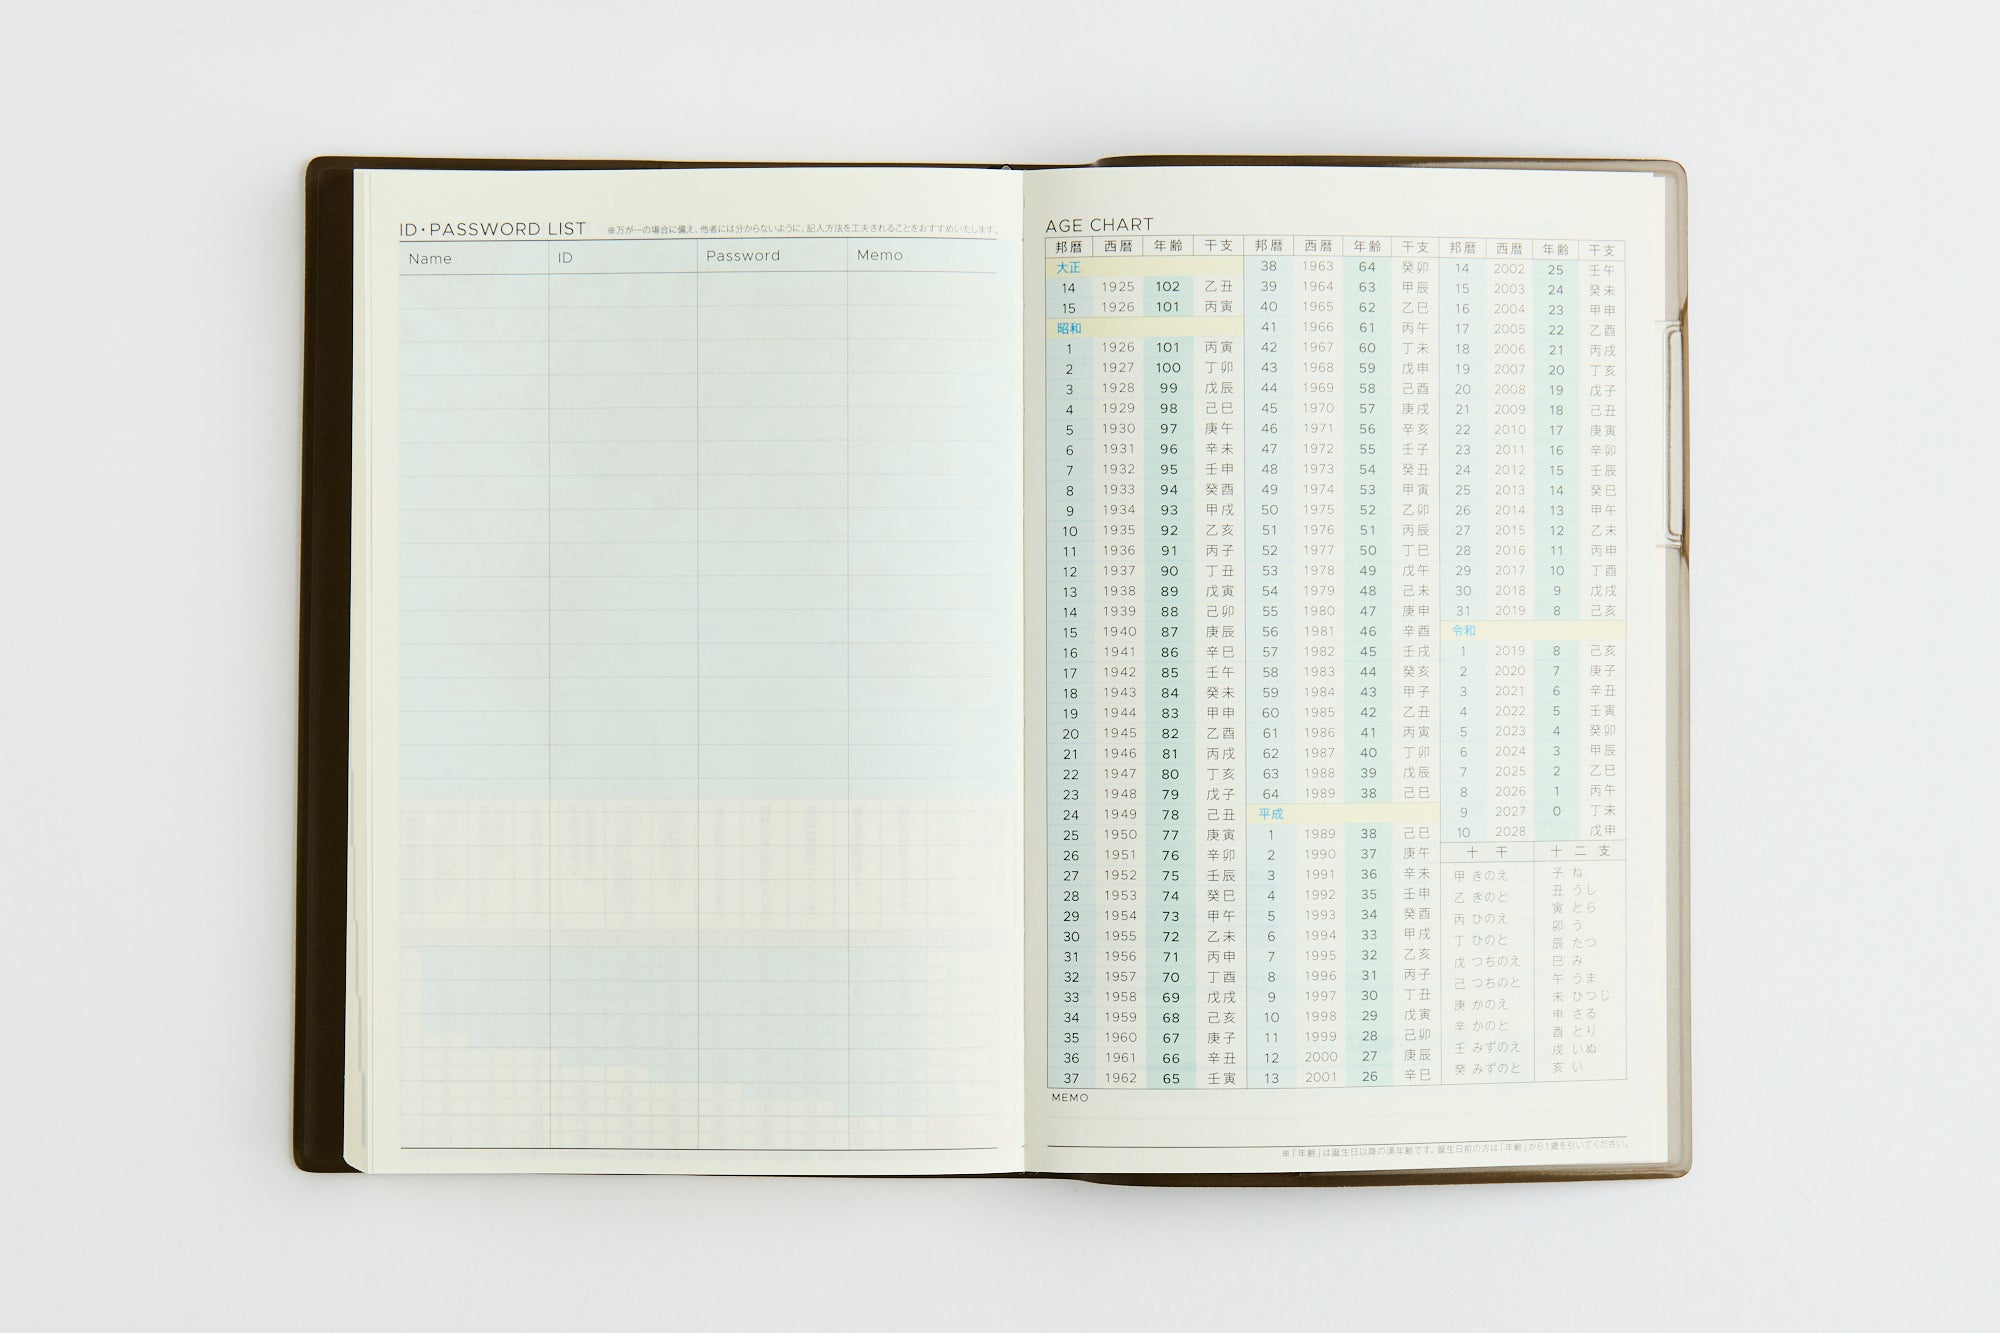 ID・PASSWORD LIST ※万が一の場合に備え、他者には分からないように、記入方法を工夫されることをおすすめいたします。
Name ID Password Memo
AGE CHART
邦暦 西暦 年齢 干支 邦暦 西暦 年齢 干支 邦暦 西暦 年齢 干支
大正 38 1963 64 癸卯 14 2002 25 壬午
14 1925 102 乙丑 39 1964 63 甲辰 15 2003 24 癸未
15 1926 101 丙寅 40 1965 62 乙巳 16 2004 23 甲申
昭和 41 1966 61 丙午 17 2005 22 乙酉
1 1926 101 丙寅 42 1967 60 丁未 18 2006 21 丙戌
2 1927 100 丁卯 43 1968 59 戊申 19 2007 20 丁亥
3 1928 99 戊辰 44 1969 58 己酉 20 2008 19 戊子
4 1929 98 己巳 45 1970 57 庚戌 21 2009 18 己丑
5 1930 97 庚午 46 1971 56 辛亥 22 2010 17 庚寅
6 1931 96 辛未 47 1972 55 壬子 23 2011 16 辛卯
7 1932 95 壬申 48 1973 54 癸丑 24 2012 15 壬辰
8 1933 94 癸酉 49 1974 53 甲寅 25 2013 14 癸巳
9 1934 93 甲戌 50 1975 52 乙卯 26 2014 13 甲午
10 1935 92 乙亥 51 1976 51 丙辰 27 2015 12 乙未
11 1936 91 丙子 52 1977 50 丁巳 28 2016 11 丙申
12 1937 90 丁丑 53 1978 49 戊午 29 2017 10 丁酉
13 1938 89 戊寅 54 1979 48 己未 30 2018 9 戊戌
14 1939 88 己卯 55 1980 47 庚申 31 2019 8 己亥
15 1940 87 庚辰 56 1981 46 辛酉 令和
16 1941 86 辛巳 57 1982 45 壬戌 1 2019 8 己亥
17 1942 85 壬午 58 1983 44 癸亥 2 2020 7 庚子
18 1943 84 癸未 59 1984 43 甲子 3 2021 6 辛丑
19 1944 83 甲申 60 1985 42 乙丑 4 2022 5 壬寅
20 1945 82 乙酉 61 1986 41 丙寅 5 2023 4 癸卯
21 1946 81 丙戌 62 1987 40 丁卯 6 2024 3 甲辰
22 1947 80 丁亥 63 1988 39 戊辰 7 2025 2 乙巳
23 1948 79 戊子 64 1989 38 己巳 8 2026 1 丙午
24 1949 78 己丑 平成 9 2027 0 丁未
25 1950 77 庚寅 1 1989 38 己巳 10 2028 戊申
26 1951 76 辛卯 2 1990 37 庚午 十干 十二支
27 1952 75 壬辰 3 1991 36 辛未 甲 きのえ 子 ね
28 1953 74 癸巳 4 1992 35 壬申 乙 きのと 丑 うし
29 1954 73 甲午 5 1993 34 癸酉 丙 ひのえ 寅 とら
30 1955 72 乙未 6 1994 33 甲戌 丁 ひのと 卯 う
31 1956 71 丙申 7 1995 32 乙亥 戊 つちのえ 辰 たつ
32 1957 70 丁酉 8 1996 31 丙子 己 つちのと 巳 み
33 1958 69 戊戌 9 1997 30 丁丑 庚 かのえ 午 うま
34 1959 68 己亥 10 1998 29 戊寅 辛 かのと 未 ひつじ
35 1960 67 庚子 11 1999 28 己卯 壬 みずのえ 申 さる
36 1961 66 辛丑 12 2000 27 庚辰 癸 みずのと 酉 とり
37 1962 65 壬寅 13 2001 26 辛巳 戌 いぬ
亥 い
MEMO
※「年齢」は誕生日以降の満年齢です。誕生日前の方は「年齢」から1歳を引いてください。